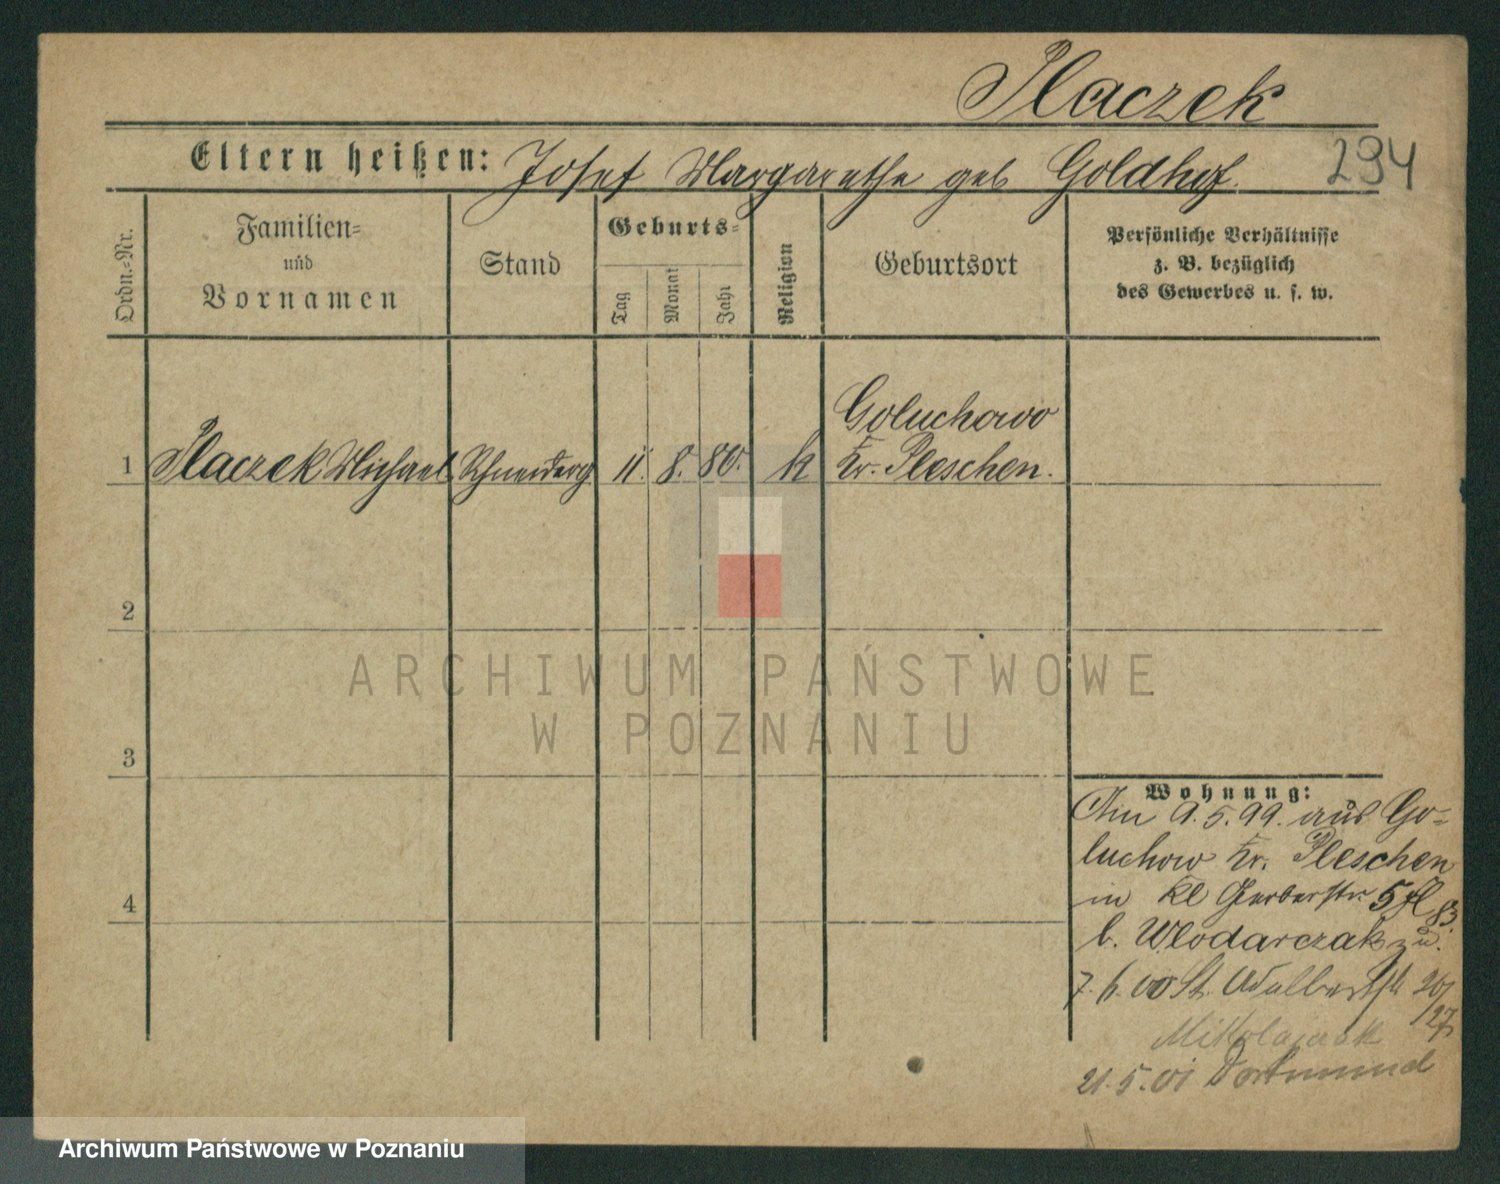 Placzek
Eltern heißen: Josef Margarethe geb Goldhof.
294
Ordn.=Nr.
Familien=
und
Vornamen
Stand
Geburts=
Tag
Monat
Jahr
Religion
Geburtsort
Persönliche Verhältnisse
z. B. bezüglich
des Gewerbes u. s. w.
Goluchowo
1 Placzek Michael Schneiderg 11. 8. 80. k Kr. Pleschen.
2
3
4
Wohnung:
Am 9.5.99. aus Go=
luchow Kr. Pleschen
in Kl Gerberstr 5
b. Wlodarczak
7.6.00 St. Adalbertstr 26/
27
Mikolajczak
21.5.01 Dortmund
ARCHIWUM PAŃSTWOWE
W POZNANIU
Archiwum Państwowe w Poznaniu